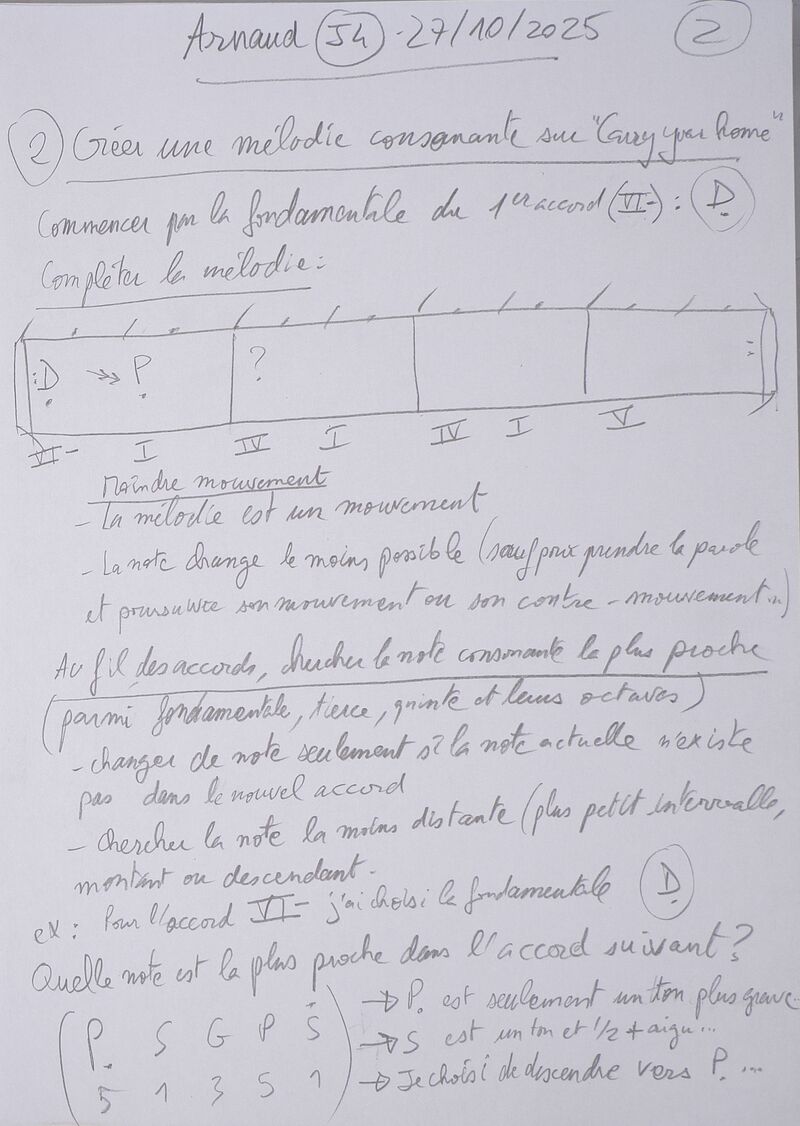 Arnaud J4 - 27/10/2025 2
2 Créer une mélodie consonante sur "Carry your home"
Commencer par la fondamentale du 1er accord (VI-) : Ḍ
Compléter la mélodie :
/ . / . / . / . / . / . / . / .
:Ḍ ->> P̣ ? :
VI- I IV I IV I V
Moindre mouvement
- La mélodie est un mouvement
- La note change le moins possible (sauf pour prendre la parole
et poursuivre son mouvement ou son contre-mouvement...)
Au fil des accords, chercher la note consonante la plus proche
(parmi fondamentale, tierce, quinte et leurs octaves)
- changer de note seulement si la note actuelle n'existe
pas dans le nouvel accord
- chercher la note la moins distante (plus petit intervalle,
montant ou descendant.
ex : Pour l'accord VI- j'ai choisi la fondamentale Ḍ
Quelle note est la plus proche dans l'accord suivant ?
(P̣ S G P Ṡ) -> P̣ est seulement un ton plus grave...
-> S est un ton et 1/2 + aigu...
5 1 3 5 1 -> Je choisi de descendre vers P̣ ...